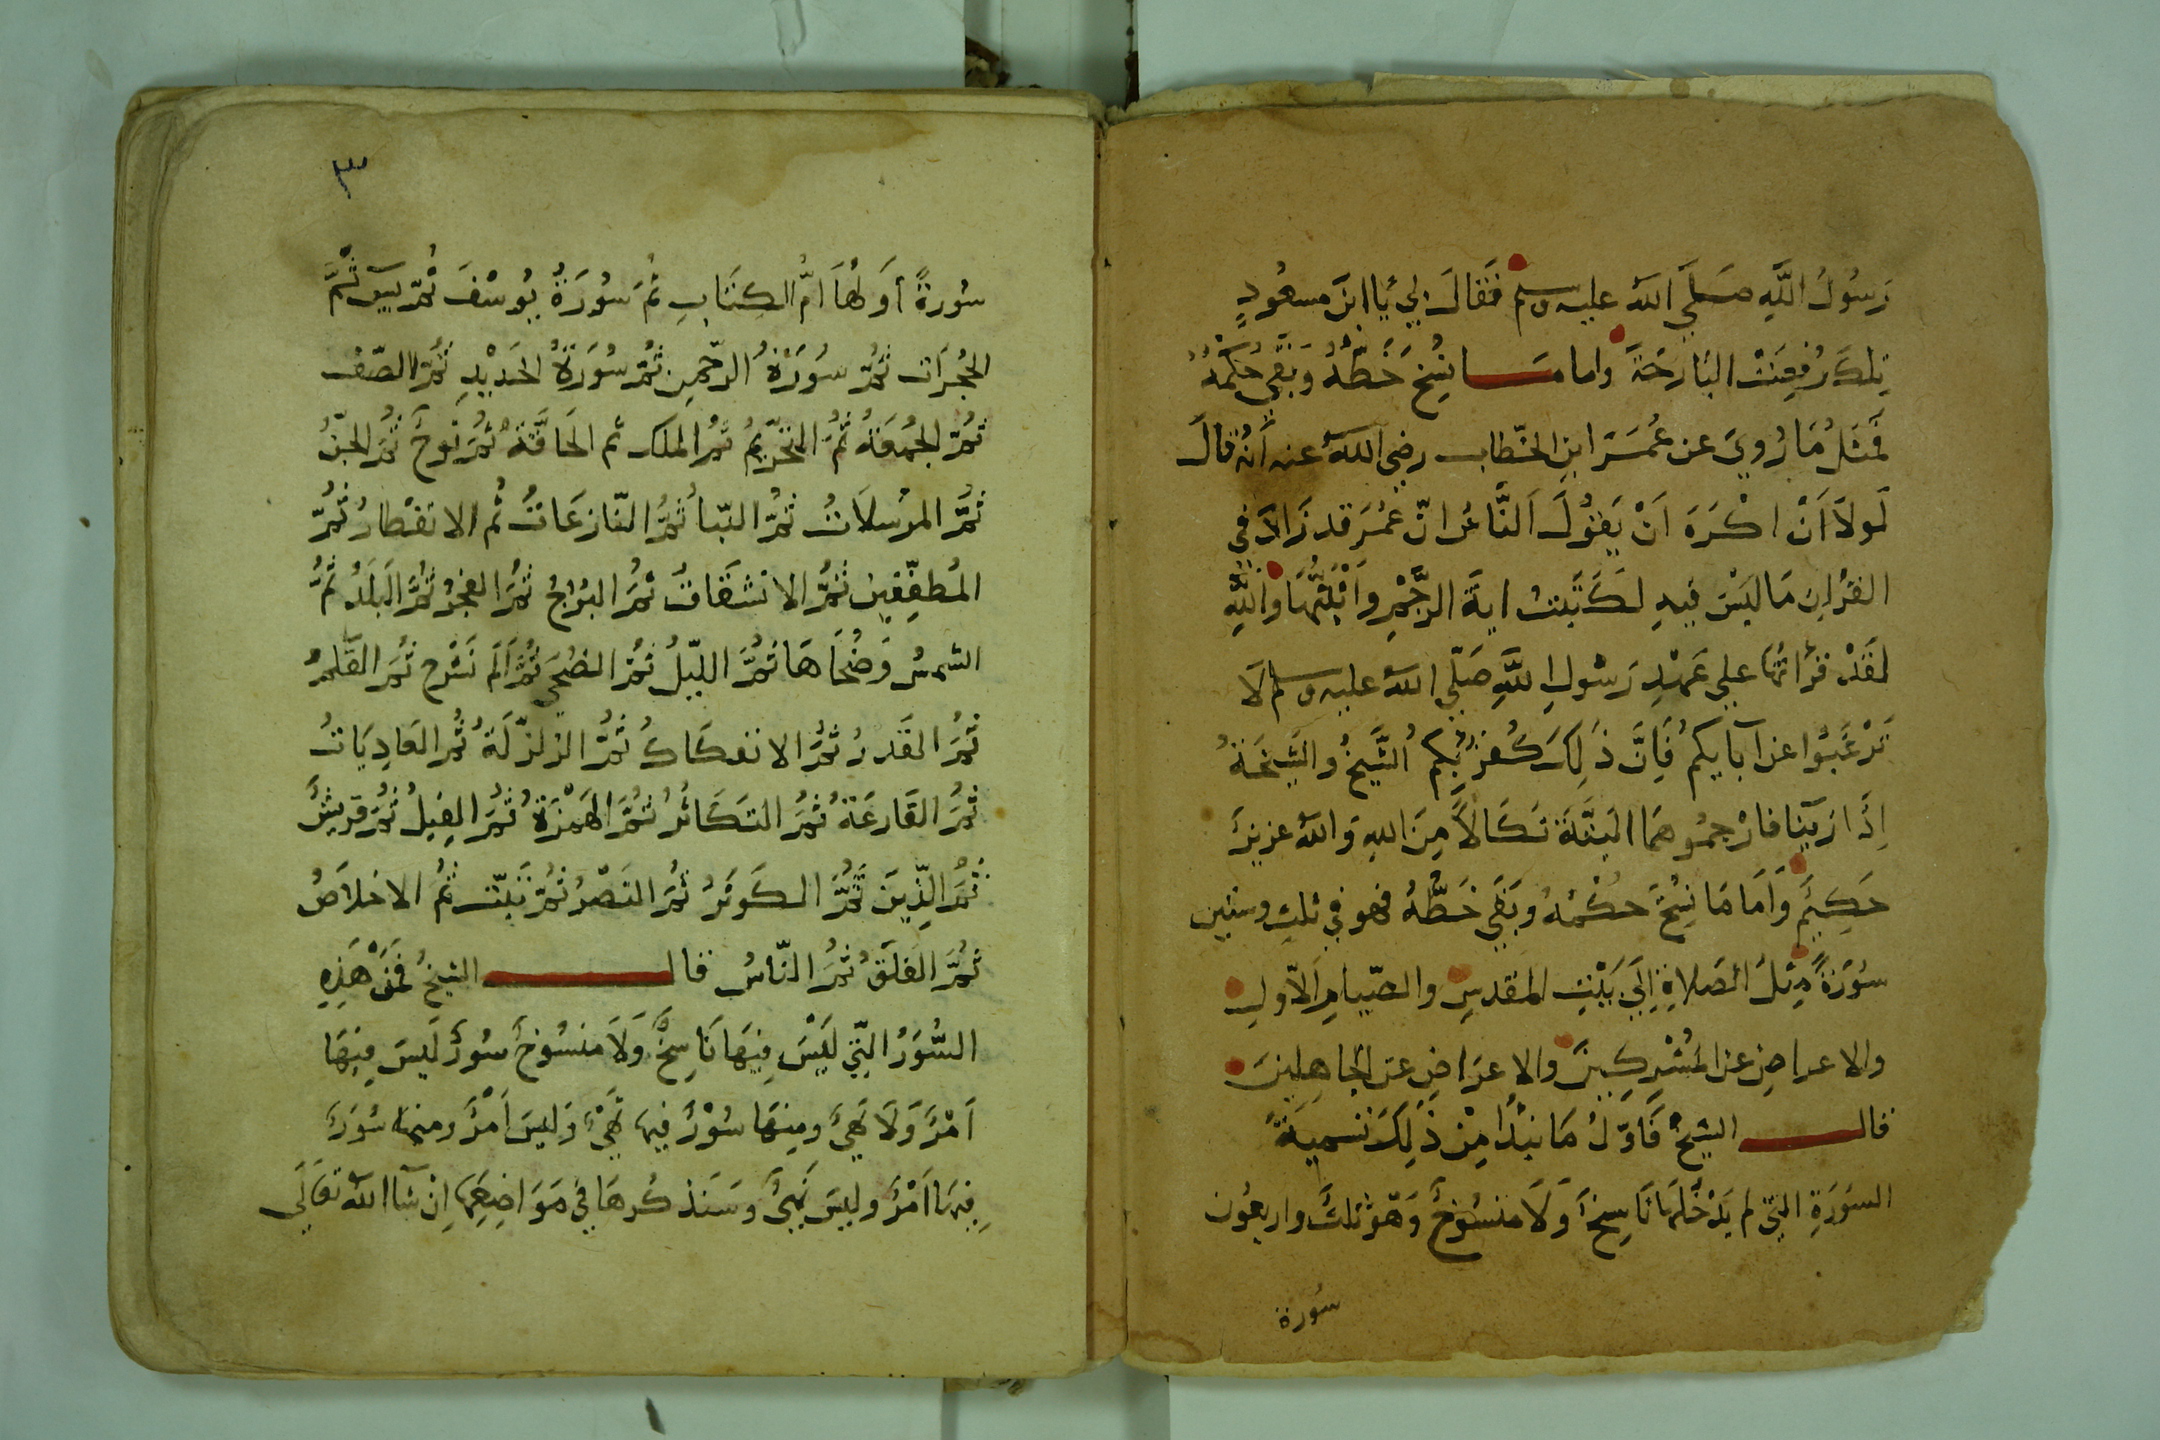 رَسُولُ اللَّهِ صَلَي اللهُ عليه وسلم فَقَالَ لِي يَا ابنَ مسعُودٍ
تِلكَ رُفِعَتْ البَارحَة وَاما مَا نُسِخ خَطُّهُ وَبَقى حُكْمُهُ
فَمثَلُ مَا رُويَ عن عُمَرَ ابنِ الخطاب رضي اللهُ عنه أنهُ قالَ
لَولاَ اَنْ اكْرَهَ اَنْ يَقُولَ النَّاسُ انّ عُمَرَ قد زَادَ في
القرُانِ مَا ليَسَ فيهِ لكَتَبتُ ايةَ الرَّجْمِ وَاثْبَتُّهَا وَاللَّهِ
لقَدْ قرَأتهُا علي عَهْدِ رَسُولِ اللَّهِ صَلّي اللهُ عليه وسلم لَا
تَرْغَبُوا عن آبايكم فَاِنَّ ذَلِكَ كُفرٌ بِكم الشَّيخُ وَالشَيخَةُ
اِذَا زنَيَا فارْجمُوهمَا البَتَّةَ نكَالاً مِنَ اللهِ وَاللهُ عزيزٌ
حَكِيمٌ وَامَا مَا نُسِخَ حُكْمُهُ وَبَقَي خَطُّهُ فهو في ثلثٍ وستين
سُوَرةً مِثلَ الصَلاةِ اِلَي بَيْتِ المقدسِ والصّيامِ الاَولِ
والاعراضِ عن المُشْرِكِينَ والاعرَاضِ عَن الجَاهِلِينَ
قال الشيخُ فَاَوّلُ مَا نبْدَأ مِنْ ذَلِكَ تَسميَةُ
السُوَرةِ التي لم يَدْخُلهَا نَاسِخٌ وَلَا منسُوخٌ وَهوَ ثلثٌ واربعُون
سُورة
٣
سُورةً اَولُهَا امُّ الكِتَابِ ثمُ سُورَةُ يُوسُفَ ثُمّ يسۤ ثُمَّ
الحُجُرَات ثمُّ سُورَةُ الرَحّمن ثمُّ سُورَةُ الحَدْيدِ ثمُّ الصّف
ثمُّ الجُمُعَةُ ثمُّ التحْرَيمُ ثمُّ الملك ثم الحَاقَّةُ ثُمّ نوُحٌ ثمُّ الجنّ
ثمُّ المرُسلاَتُ ثمُّ النّبأ ثمُّ النّازعَاتُ ثُم الانفْطارُ ثُمّ
المُطفّفِينَ ثمُّ الانشقَاقُ ثمُّ البُروُجُ ثمُّ الفجرُ ثمُّ البَلَدُ ثمُّ
الشمسُ وَضُحَاهَا ثمُّ اللّيلُ ثمُّ الضُحَي ثُمّ اَلَم نَشْرح ثمُّ القَلمُ
ثمُّ القَدرُ ثمُّ الانفكَاكُ ثمُّ الزلزَلَةُ ثُمّ العَادِيَاتُ
ثمُّ القَارعَةُ ثمُّ التكَاثرُ ثمُّ الهَمْزَةُ ثمُّ الفِيلُ ثمُّ قريشٌ
ثمُّ الّذِينَ ثمُّ الكَوثرُ ثمُّ النَصْرُ ثمُّ تَبّتْ ثمُّ الاخلاَصُ
ثمُّ الفلَقُ ثمُّ النّاسُ قال الشيخُ فَهَذِهِ
السُّوَرُ التِيّ لَيْسَ فِيهَا نَاسِخٌ وَلاَ منسُوخٌ سُوَرٌ لَيسَ فِيهَا
اَمْرٌ وَلَا نَهىٌ ومِنهَا سُوَرٌ فيها نَهْيٌ وَليسَ اَمْرٌ ومنها سُوَرٌ
فِيهَا اَمْرٌ وليسَ نَهىٌ وَسَنَذكُرهَا في مَوَاضِعِهَا اِنْ شَا اللهُ تعَالَي